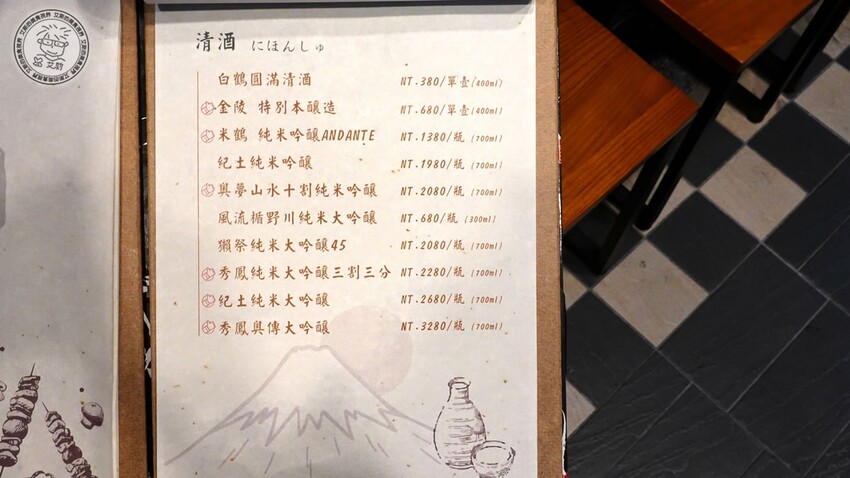 清酒 にほんしゅ
白鶴圓滿清酒 NT.380/單壺(400ml)
金陵 特別本釀造 NT.680/單壺(400ml)
米鶴 純米吟釀ANDANTE NT.1380/瓶 (700ml)
紀土純米吟釀 NT.1980/瓶 (700ml)
與夢山水十割純米吟釀 NT.2080/瓶 (700ml)
風流楯野川純米大吟釀 NT.680/瓶 (300ml)
獺祭純米大吟釀45 NT.2080/瓶 (700ml)
秀鳳純米大吟釀三割三分 NT.2280/瓶 (700ml)
紀土純米大吟釀 NT.2680/瓶 (700ml)
秀鳳與傳大吟釀 NT.3280/瓶 (700ml)